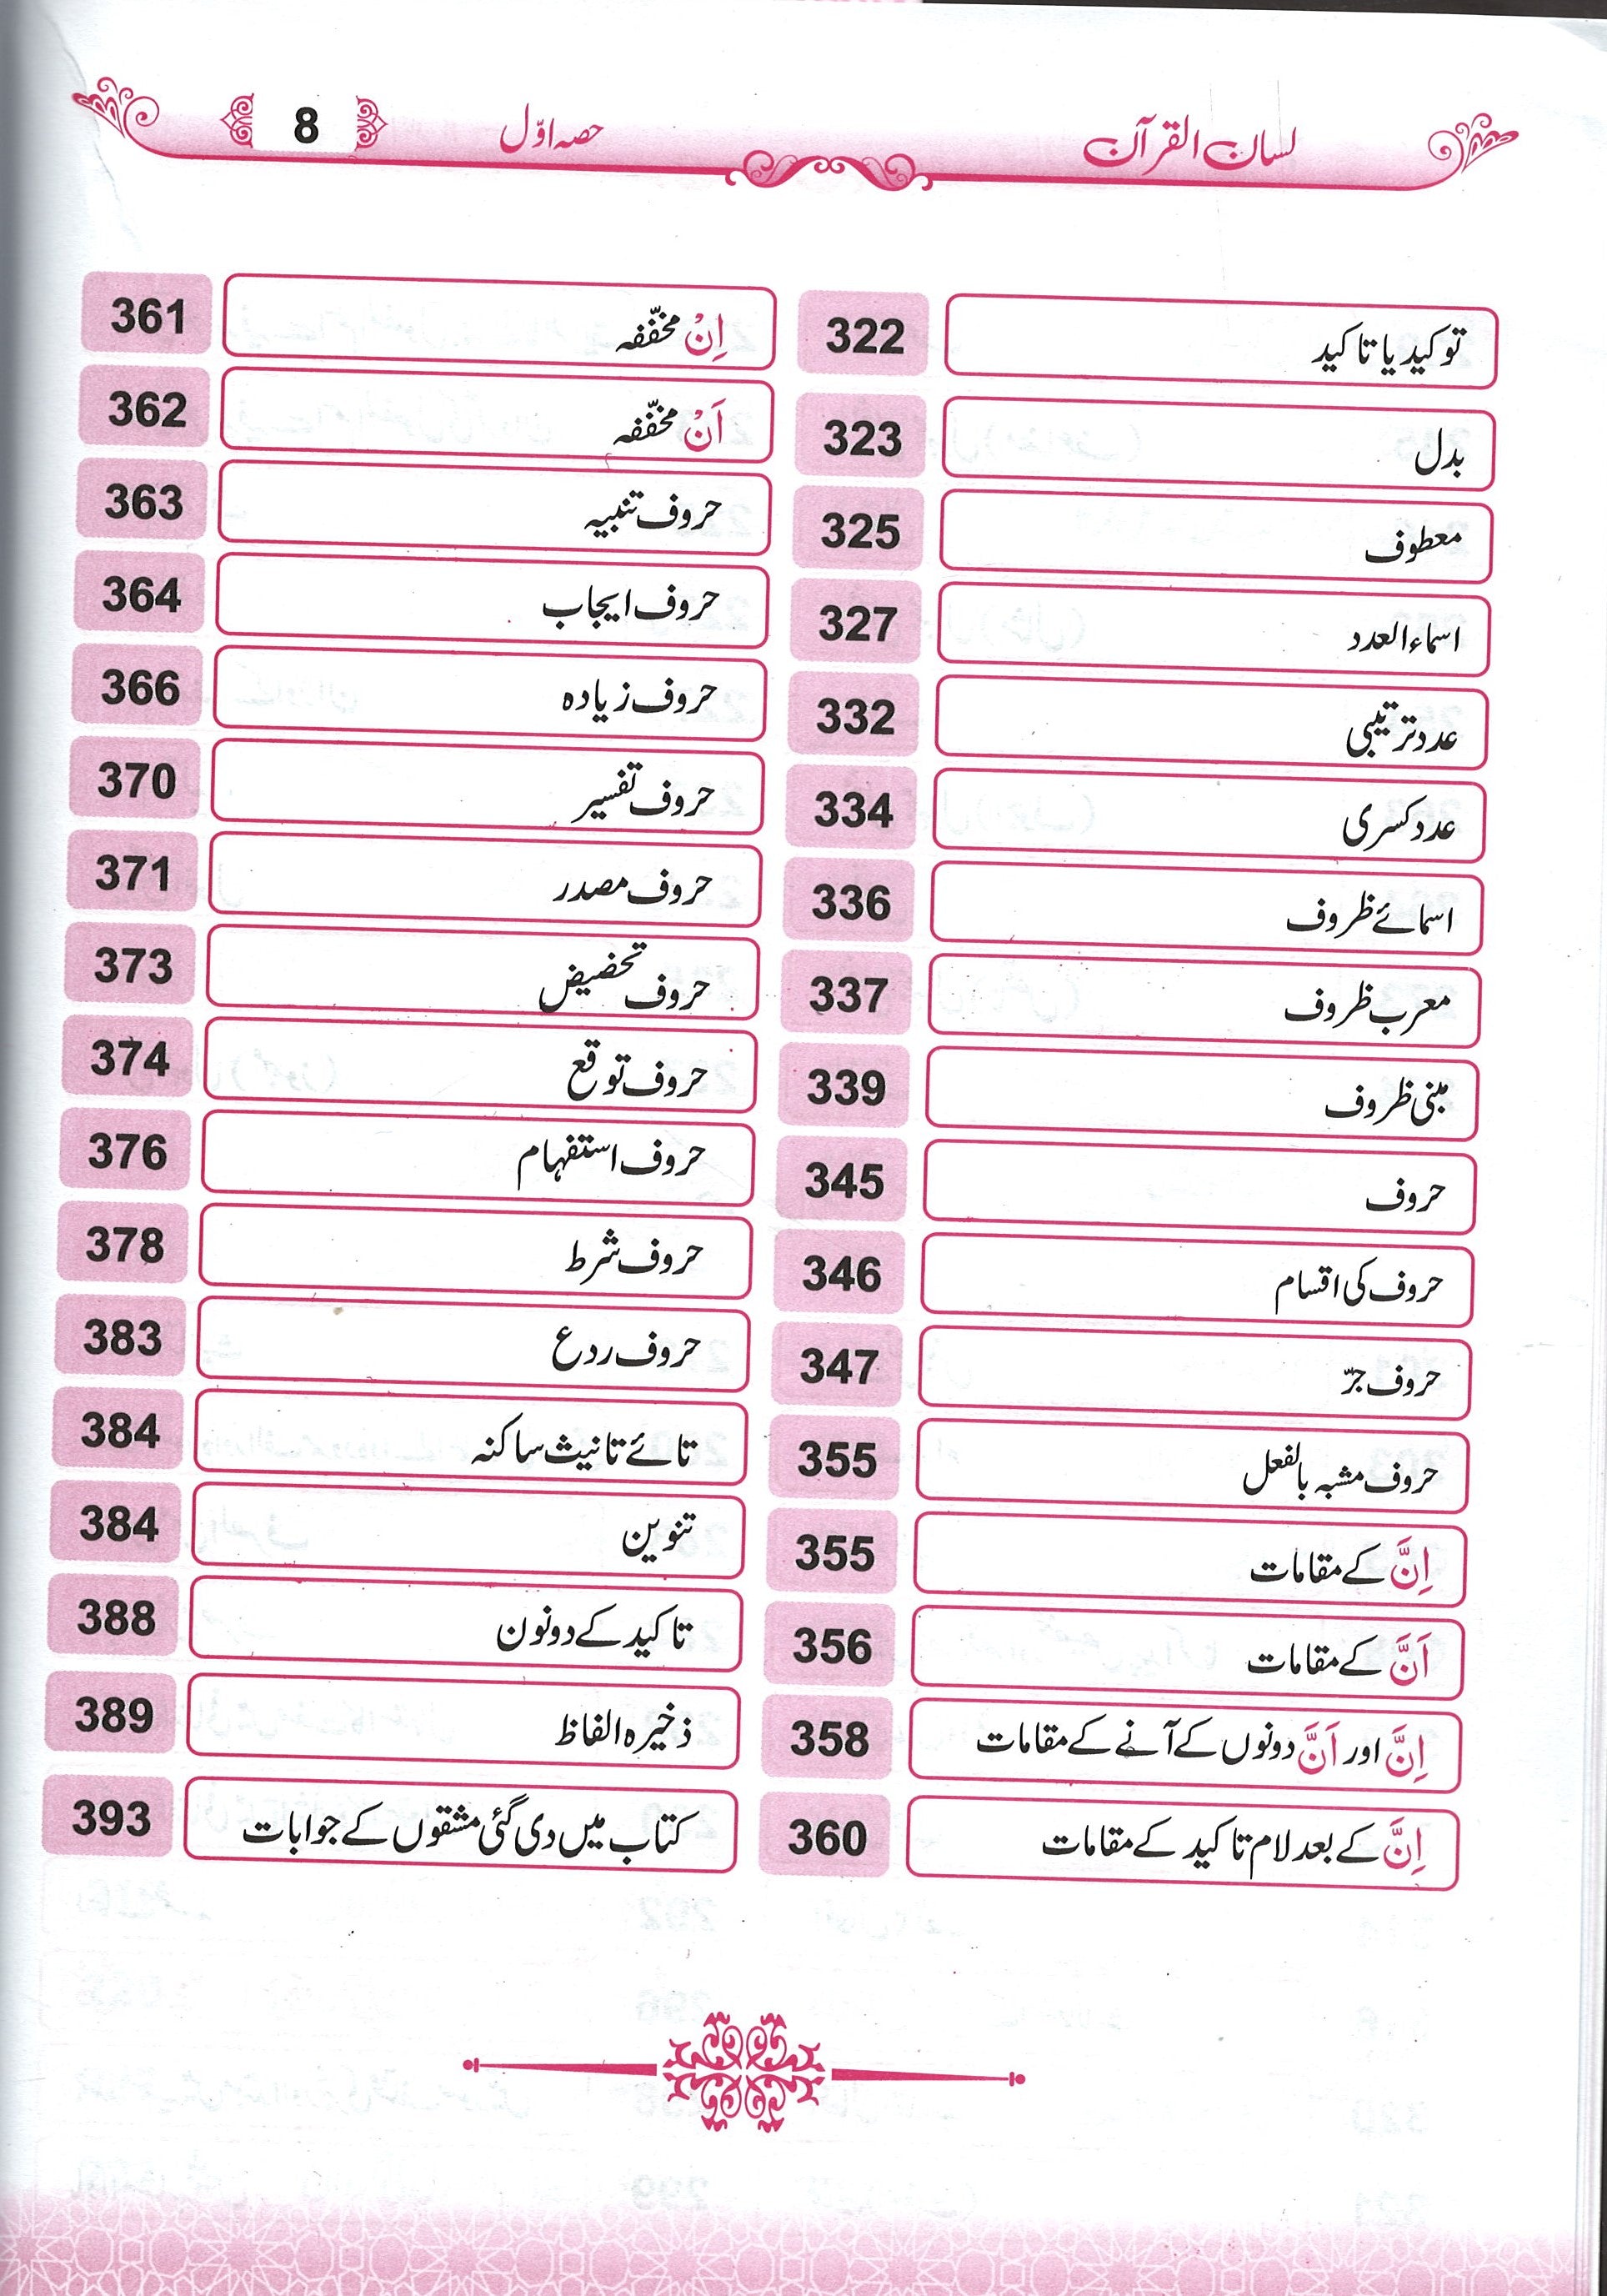 لسان القرآن حصہ اوّل 8
توکید یا تاکید 322
بدل 323
معطوف 325
اسماء العدد 327
عدد ترتیبی 332
عدد کسری 334
اسمائے ظروف 336
معرب ظروف 337
مبنی ظروف 339
حروف 345
حروف کی اقسام 346
حروف جرّ 347
حروف مشبہ بالفعل 355
اِنَّ کے مقامات 355
اَنَّ کے مقامات 356
اِنَّ اور اَنَّ دونوں کے آنے کے مقامات 358
اِنَّ کے بعد لام تاکید کے مقامات 360
اِنْ مخفّفہ 361
اَنْ مخفّفہ 362
حروف تنبیہ 363
حروف ایجاب 364
حروف زیادہ 366
حروف تفسیر 370
حروف مصدر 371
حروف تحضیض 373
حروف توقع 374
حروف استفہام 376
حروف شرط 378
حروف ردع 383
تائے تانیث ساکنہ 384
تنوین 384
تاکید کے دو نون 388
ذخیرہ الفاظ 389
کتاب میں دی گئی مشقوں کے جوابات 393